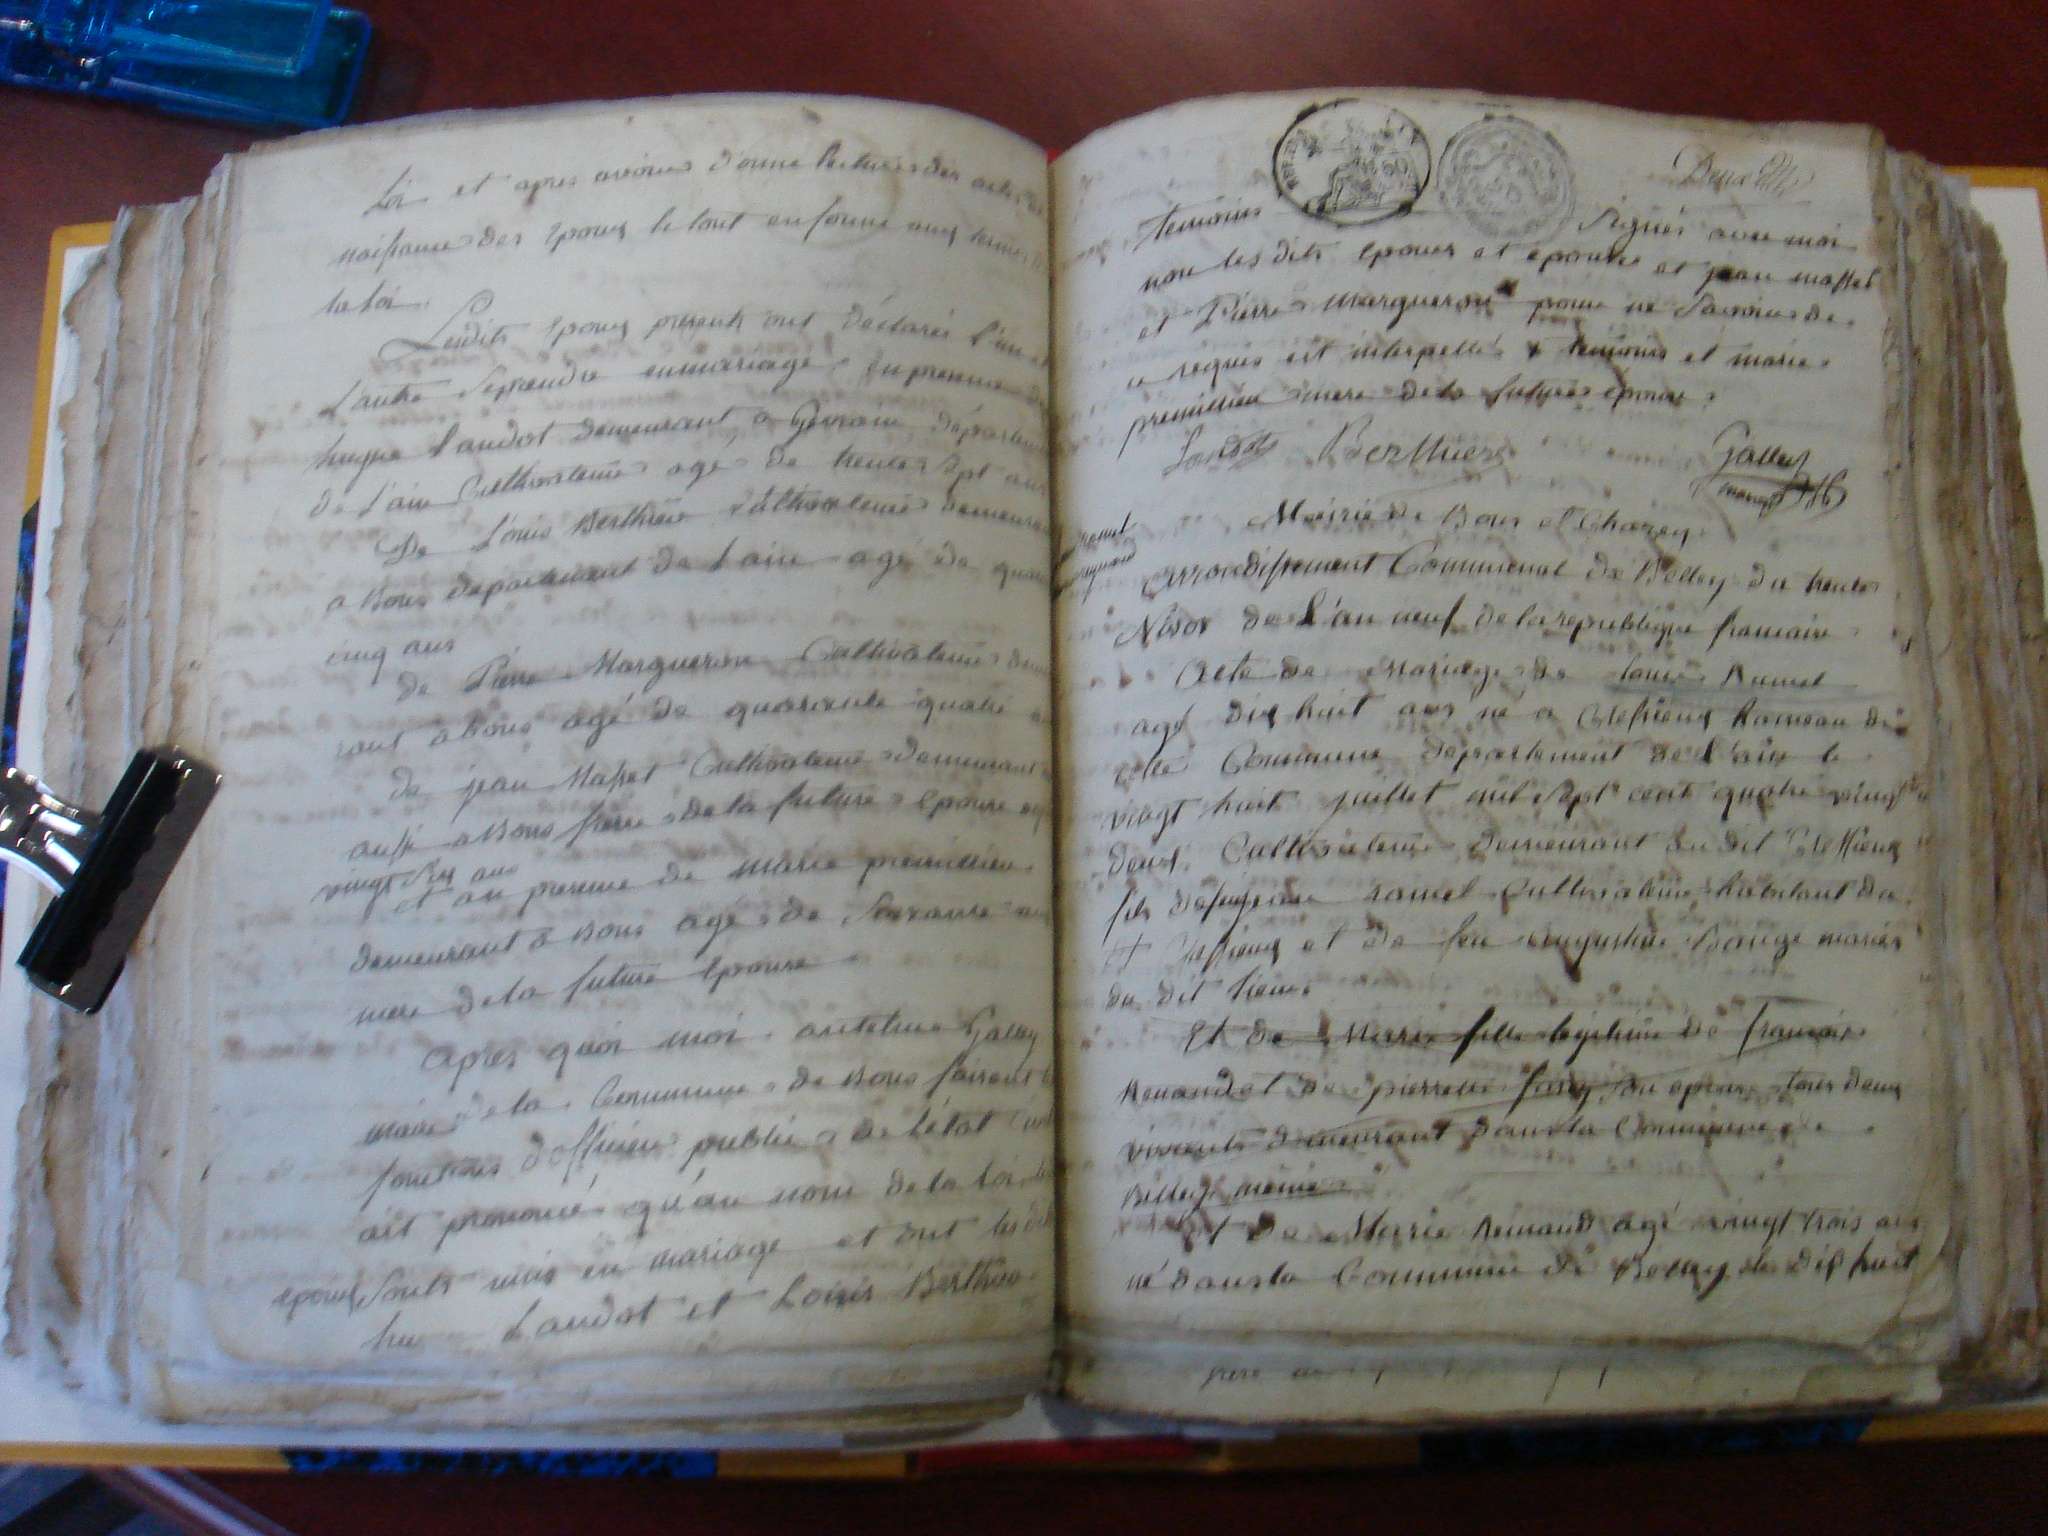 Loi et apres avoir donné lecture des actes de
naissance des epoux le tout en forme aux termes de
la loi.
Lesdits epoux presents ont déclarés l'un et
l'autre se prendre en mariage en presence de
Landot demeurant a departement
de L'ain Cultivateur agé de trente sept ans
De Louis Berthier Cultivateur demeurant
a Bons departement de Lain agé de
cinq ans
de Pierre Margueron Cultivateur
a Bons agé de quarante quatre
de jean Massel Cultivateur demeurant
aussi a Bons frere de la future epouse
vingt six ans
et en presence de marie premillieu
demeurant a Bons agé de
mere de la future epouse
apres quoi moi antelme Galley
maire de la Commune de Bons faisant
fonctions d'officier public de l'état civil
ait prononcé qu'au nom de la loi
epoux sonts unis en mariage et ont lesdits
Landot et Louis Berthier
Deux
temoins signés avec moi
non les dits epoux et epouse et jean massel
et Pierre Margueron pour ne savoir de
ce requis est interpellés temoins et marie
premillieu mere de la future épouse.
Landot Berthier Galley
maire
Mairie de Bons et Chazey
arrondissement Communal de Belley du trente
Nivos de L'an neuf de la republique francaise
Acte de Mariage de Ramel
agé dix huit ans né a Cressieux hameau de
cette Commune departement de L'ain le
vingt huit juillet mil sept cent quatre vingt
deux Cultivateur demeurant au dit Cressieux
fils de jean ramel Cultivateur habitant du
et de feu augustine mariés
du dit lieu.
Et de Marie fille legitime de francois
Renaud et de pierrette son epouse tous deux
vivants demeurant dans la Commune de
Belley
Et de Marie Renaud agé vingt trois ans
né dans la Commune de Belley le dix huit